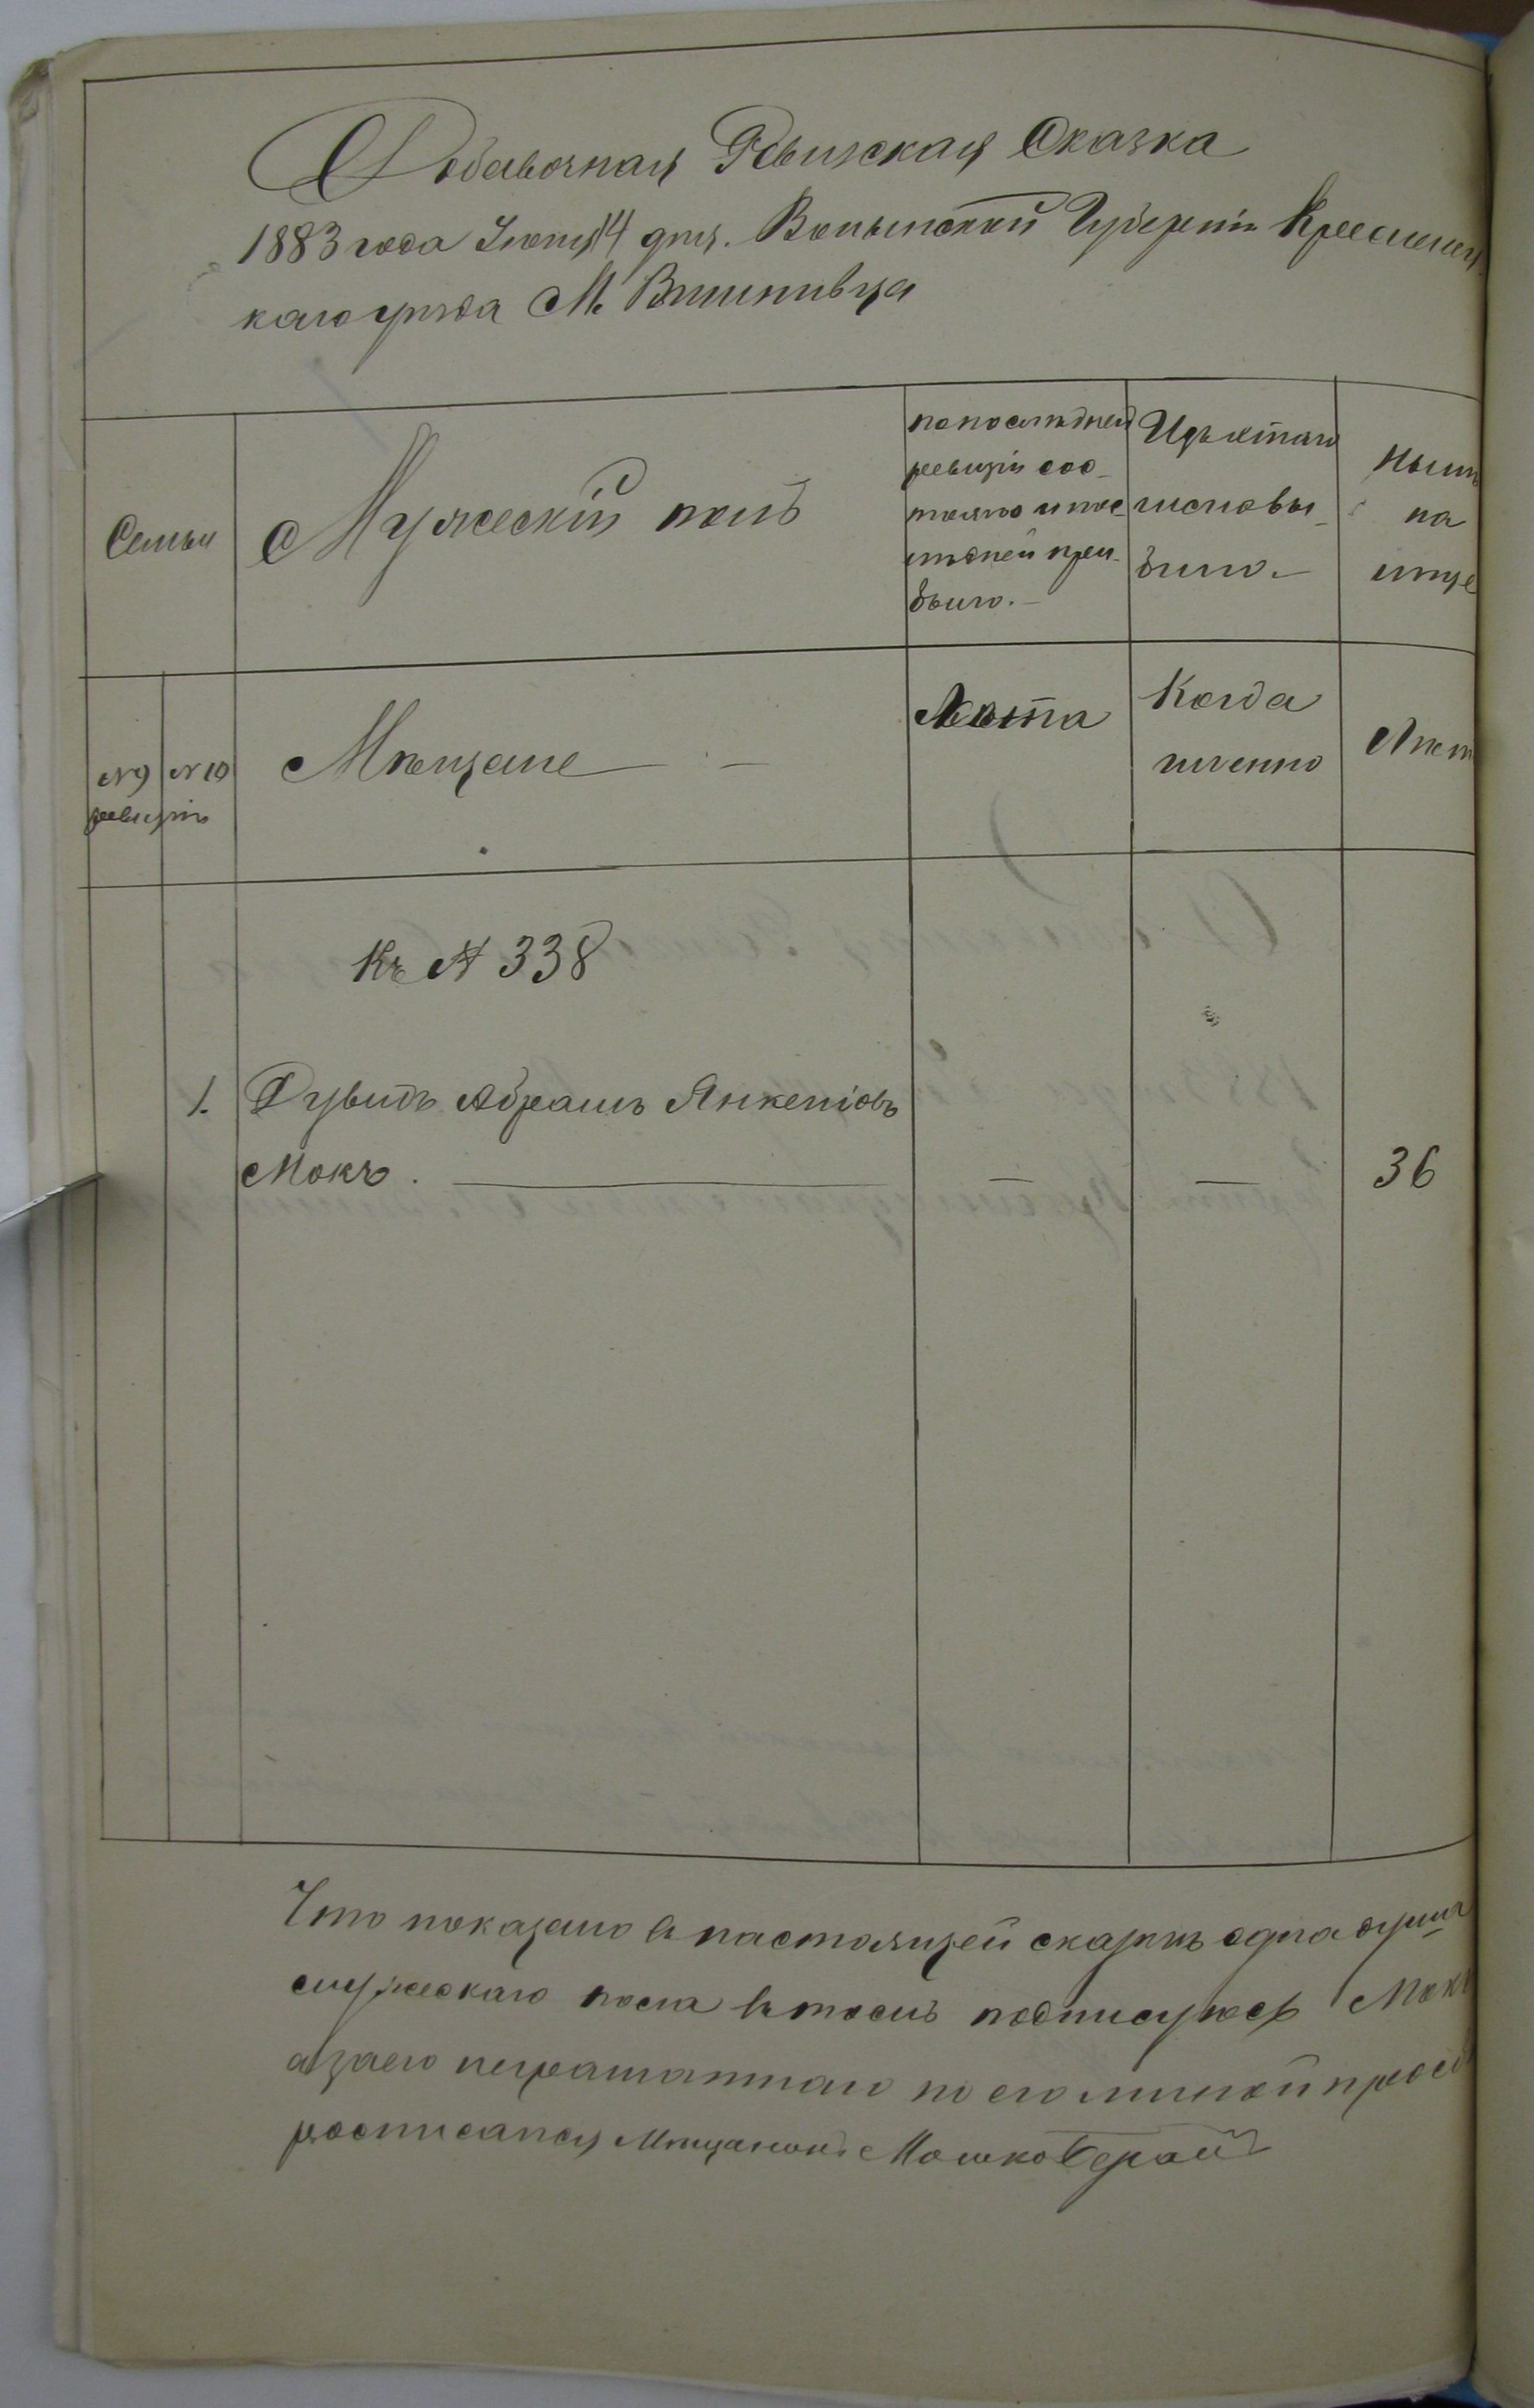 Добавочная Ревизская Сказка
1883 года Іюня 14 дня. Волынской Губерніи Кременец
каго уѣзда М. Вишневца
Семьи
Мужескій полъ
по послѣдней
ревизіи сос-
тояло и пос-
лѣ оней при-
было.-
Изъ этаго
числа вы-
было.-
Нынѣ
на
лице
№9 №10
ревизіи
Мѣщане
Лѣта
Когда
именно
Лѣт
Къ № 338
1. Дувидъ Абрамъ Янкеліовъ
Мокъ. — — 36
Что показано въ настоящей сказкѣ одна душа
мужескаго пола въ томъ подписуюсь Мокъ
а за его неграматнаго по его личной прось
росписался Мѣщанинъ Мошко